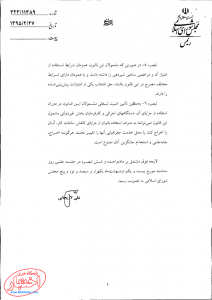 شماره ۲۲۳/۱۱۳۸۹
تاریخ ۱۳۹۵/۲/۲۷
پیوست
رئیس
تبصره ۵- در صورتی که مشمولان این قانون، همزمان شرایط استفاده از
امتیاز آن و مرخصی ساعتی شیردهی را داشته باشند و یا همزمان دارای شرایط
مختلف مصرح در این قانون باشند، حق انتخاب یکی از امتیازات پیش‌بینی‌شده
را دارند.
تبصره ۶- بمنظور تأمین امنیت شغلی مشمولان این قانون در دوره
استفاده از مزایای آن، دستگاههای اجرائی و کارفرمایان بخش غیردولتی مشمول
این قانون نمی‌توانند به صرف استفاده بانوان از مزایای کاهش ساعات کار، آنان
را اخراج کنند یا محل خدمت جغرافیایی آنها را تغییر دهند. هرگونه اخراج،
جابه‌جایی و استخدام جایگزین آنان ممنوع است.
لایحه فوق مشتمل بر ماده‌واحده و شش تبصره در جلسه علنی روز
سه‌شنبه مورخ بیست و یکم اردیبهشت‌ماه یکهزار و سیصد و نود و پنج مجلس
شورای اسلامی به تصویب رسید.
علی لاریجانی
اختبار